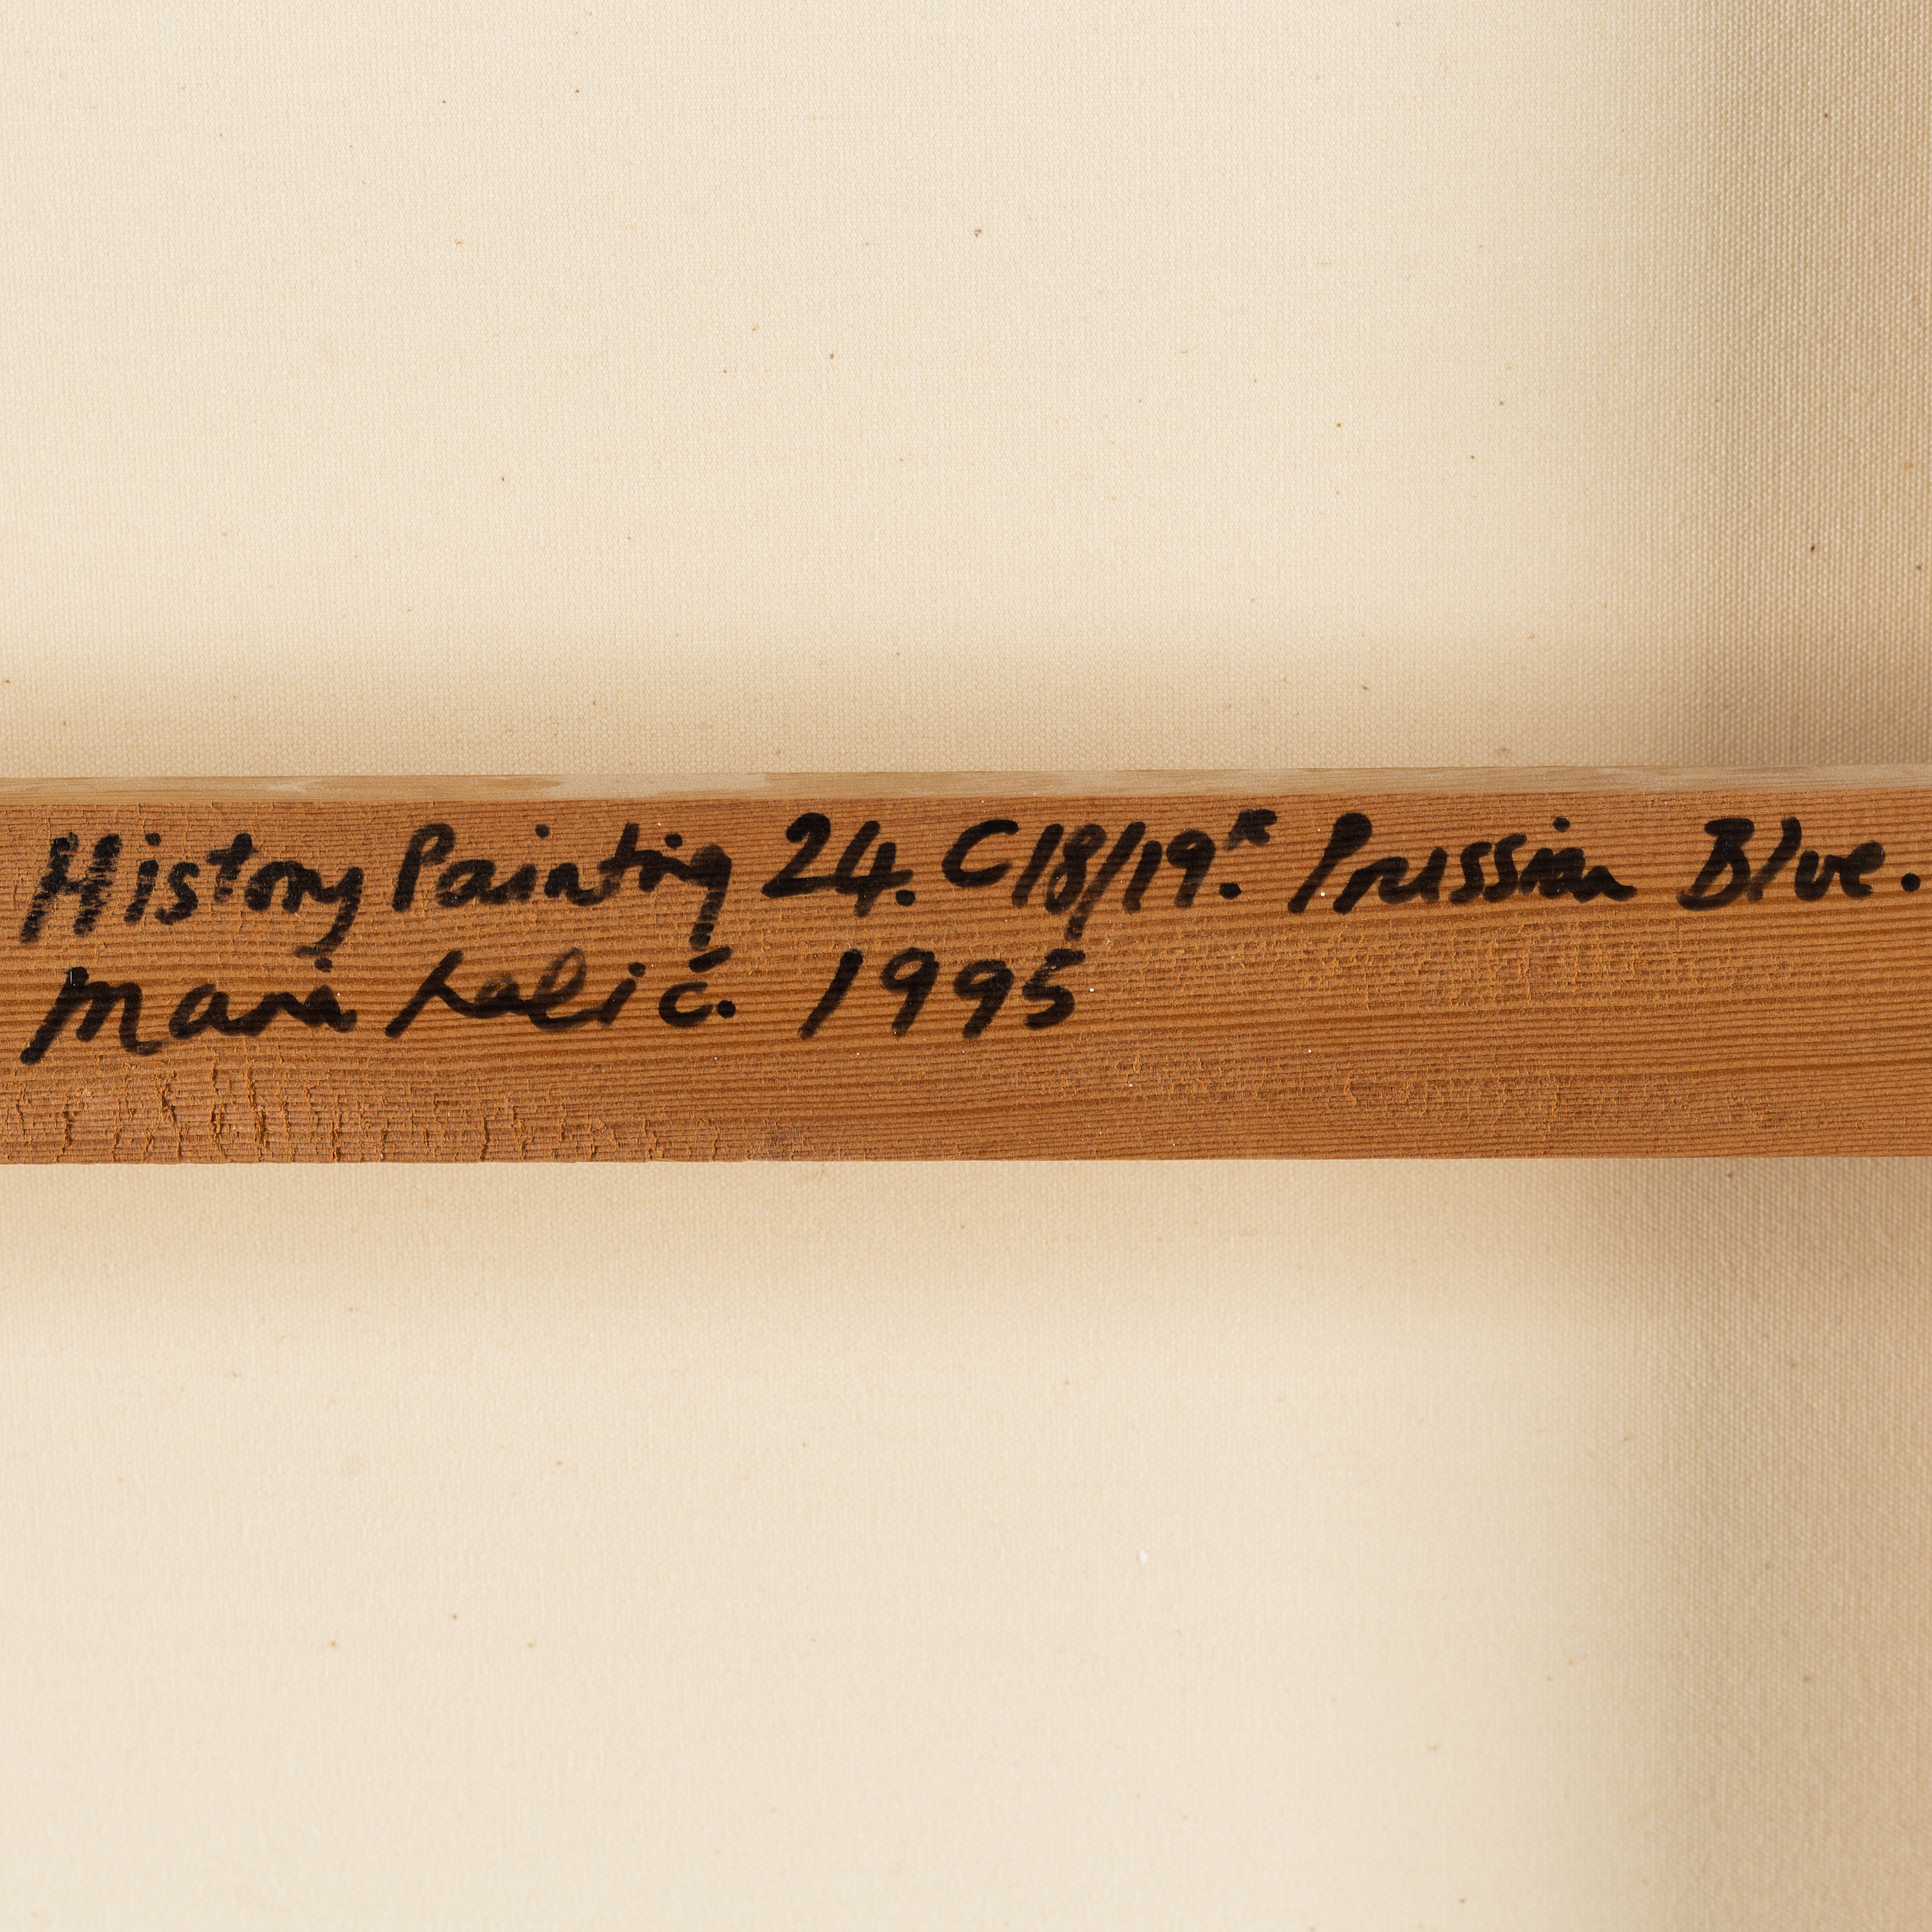 History Painting 24. C18/19th. Prussian Blue.
Maria Lalić. 1995